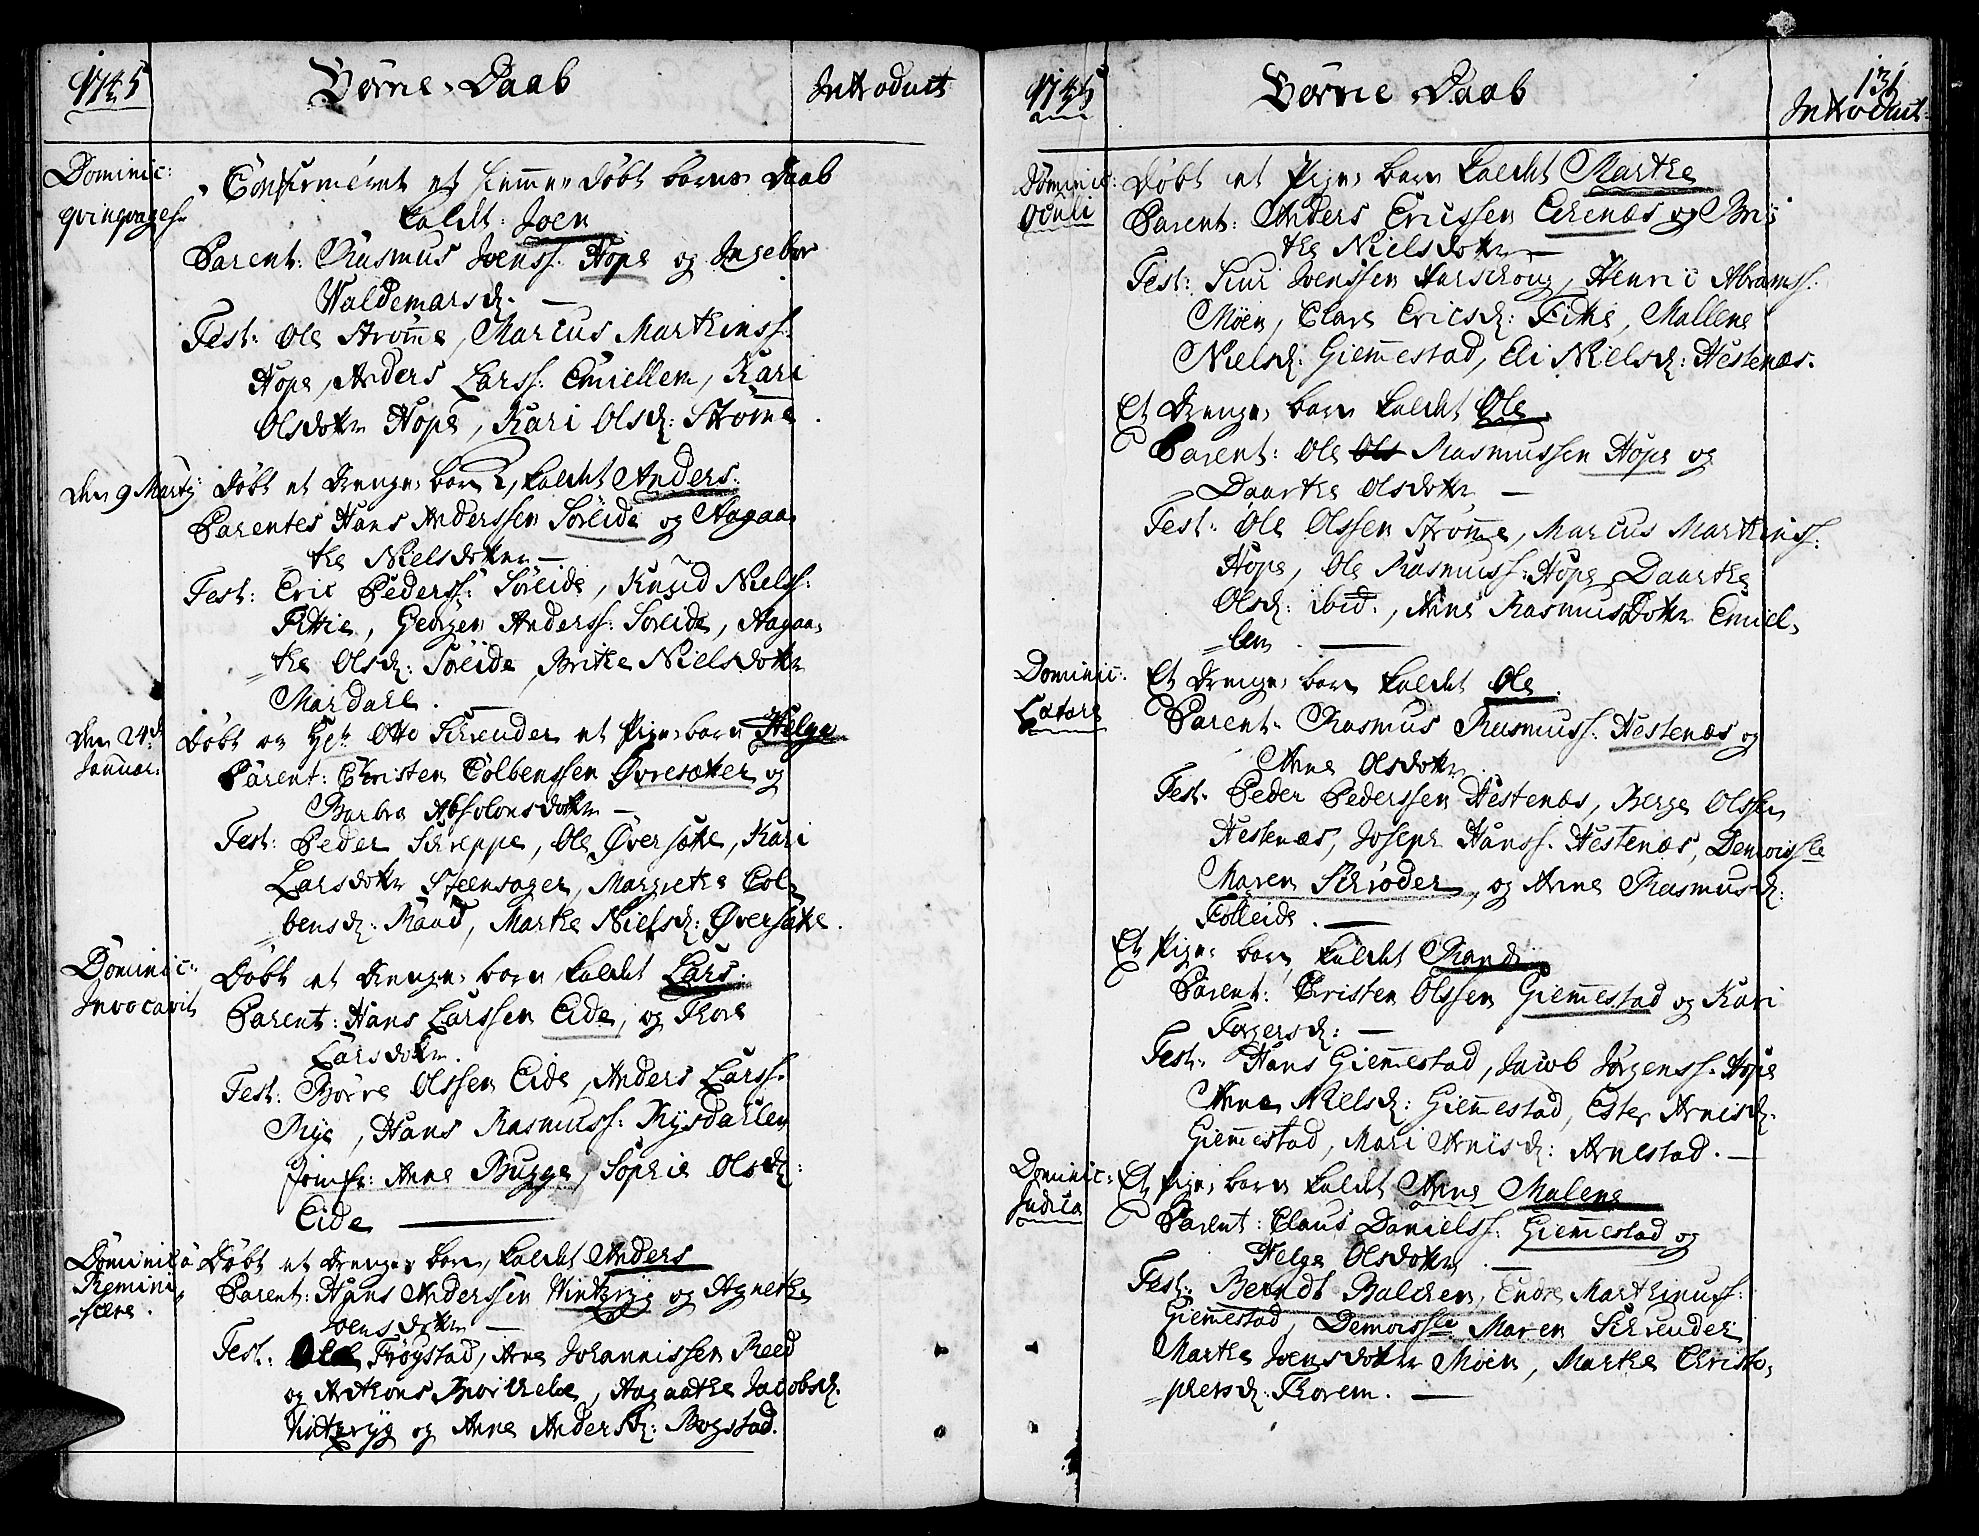 1745
Børne-Daab
Introduct
Dominic:
qvinqvages:
Confirmeret et hiemme døbt barns Daab
kaldt: Joen
Parent: Rasmus Joenss: Hope og Ingebor
Waldemarsd. —
Test: Ole Strømme, Marcus Marthinss:
Hope, Anders Larss: Emiellem, Kari
Olsdotter Hope, Kari Olsd: Strømme.
den 9 Martij
Døbt et Drenge-barn, kaldet Anders.
Parentes Hans Anderssen Søreide og Aagaa-
the Nielsdotter —
Test: Eric Pederss: Søreide, Knud Nielss:
Fittie, Georgen Anderss: Søreide, Aagaa-
the Olsd: Søreide, Brithe Nielsdotter
Mardahl. —
den 24d
Januar:
Døbt av Hr: Otto Schreuder et Pige-barn Helga
Parent: Christen Colbenssen Øvresæter og
Barbra Absolonsdotter —
Test: Peder Schreppe, Ole Øversæte, Kari
Larsdotter Steensager, Margrethe Col-
bensd: Raad, Marthe Nielsd: Øversæte.
Dominic:
Invocavit
Døbt et Drenge-barn, kaldet Lars.
Parent: Hans Larssen Eide, og Thore
Larsdotter.
Test: Børre Olssen Eide, Anders Larss.
Rye, Hans Rasmuss: Rysdahlen
Jomfr: Anne Bugge, Sophie Olsd:
Eide —
Dominica
Remini-
scere.
Døbt et Drenge-barn, kaldet Anders
Parent: Hans Anderssen Vintervig og Agnethe
Joensdotter —
Test: Ole Frøystad, Arne Johannissen Reed
og Anthons, Aagaathe Jacobsd.
og Anne Andersd: Bogstad.
1745
Børne-Daab
131
Introduct:
Dominic:
Oculi
Døbt et Pige-barn kaldet Marthe
Parent: Anders Ericssen Eerenæs og Bri-
the Nielsdotter —
Test: Siur Joenssen Aarschoug, Henric Abramss:
Moen, Clare Ericsd: Fitie, Mallene
Nielsd: Giemmestad, Eli Nielsd: Hestenæs.
Et Drenge-barn kaldet Ole.
Parent: Ole Ols Rasmussen Hope og
Daarthe Olsdotter —
Test: Ole Olssen Strømme, Marcus Marthinss:
Hope, Ole Rasmuss: Hope, Daarthe
Olsd: ibid:, Anne Rasmusdotter Emiel-
lem. —
Dominic:
Lætare
Et Drenge-barn kaldet Ole.
Parent: Rasmus Rasmuss: Hestenæs og
Anne Olsdotter.
Test: Peder Pederssen Hestenæs, Berge Olssen
Hestenæs, Joseph Hanss. Hestenæs, Demoiselle
Maren Schrøder, og Anne Rasmusd:
Folleide. —
Et Pige-barn kaldet Randi
Parent: Christen Olssen Giemmestad og Kari
Torgersd: —
Test: Hans Giemmestad, Jacob Jørgenss. Hope
Anne Nielsd: Giemmestad, Ester Arnisd.
Giemmestad, Mari Arnisd: Arnestad. —
Dominic:
Judica
Et Pige-barn kaldet Anne Malene
Parent: Claus Danielss: Giemmestad og
Helge Olsdotter. —
Test: Berndt Balchen, Endre Marthinuss:
Giemmestad, Demoiselle Maren Schreuder
Marthe Joensdotter Moen, Marthe Christo-
phersd: Thorem. —